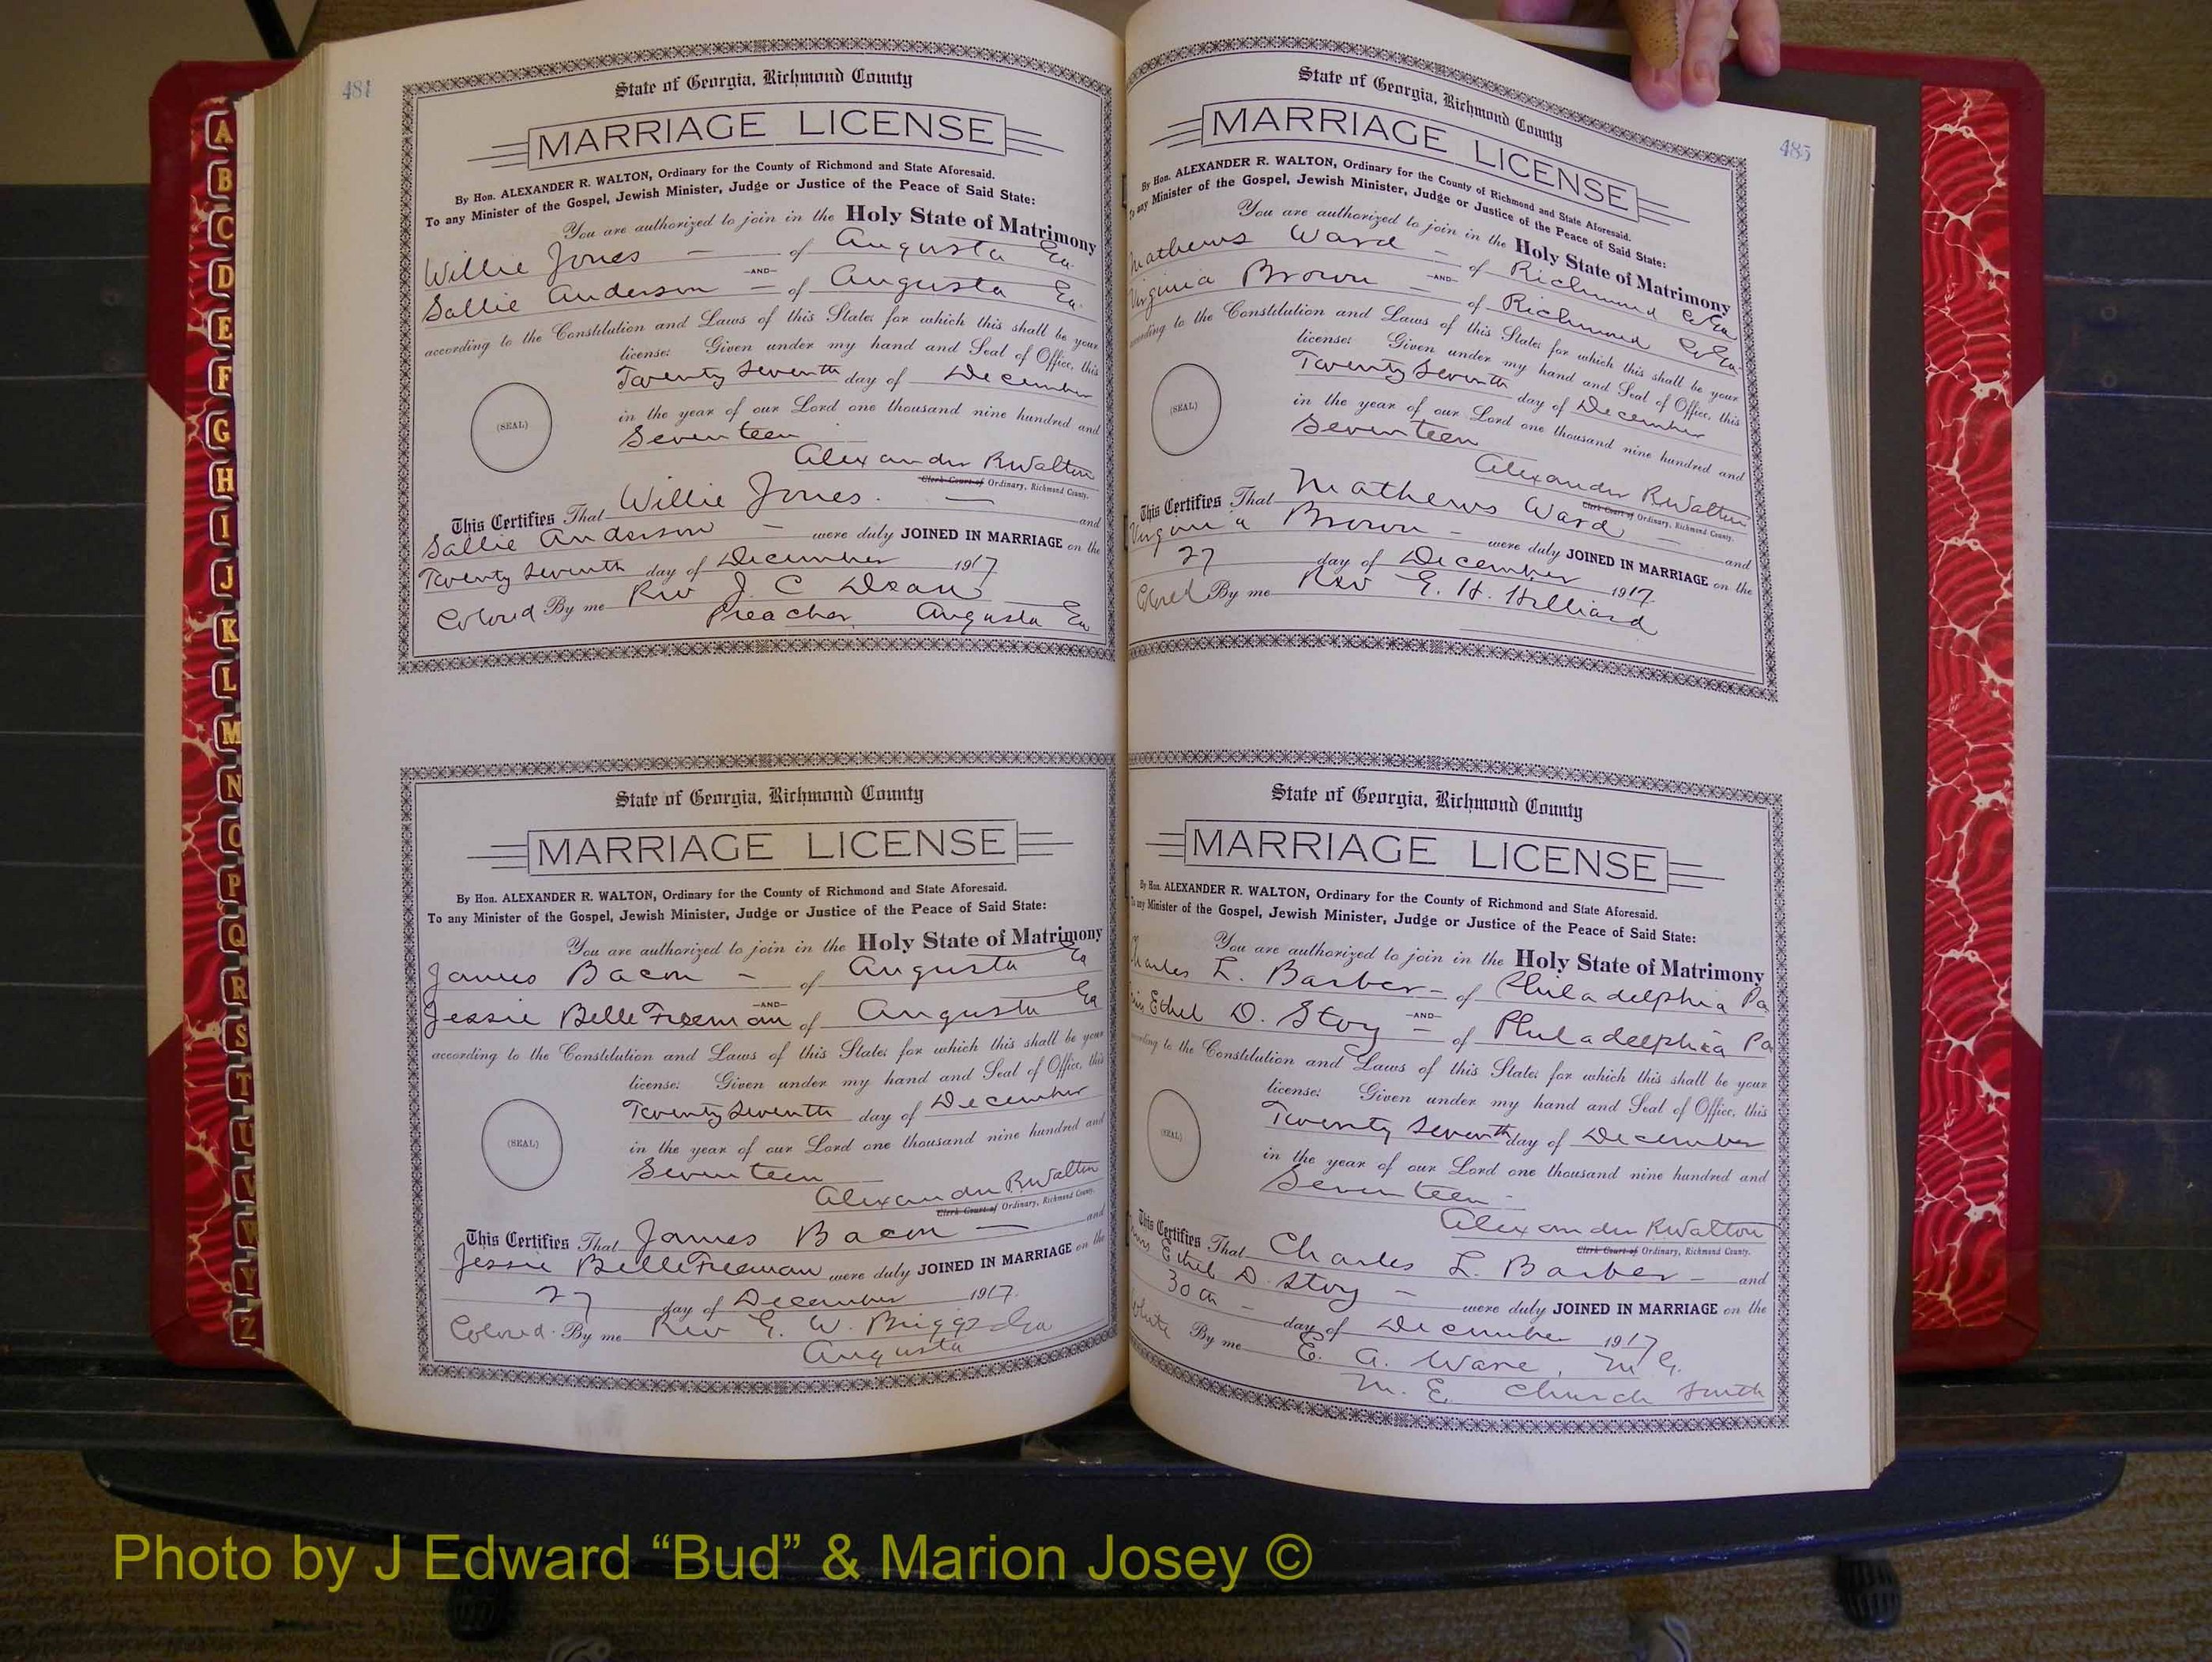 484
State of Georgia, Richmond County
MARRIAGE LICENSE
By Hon. ALEXANDER R. WALTON, Ordinary for the County of Richmond and State Aforesaid.
To any Minister of the Gospel, Jewish Minister, Judge or Justice of the Peace of Said State:
You are authorized to join in the Holy State of Matrimony
Willie Jones - of Augusta Ga.
-AND-
Sallie Anderson - of Augusta Ga.
according to the Constitution and Laws of this State; for which this shall be your
license: Given under my hand and Seal of Office, this
Twenty Seventh day of December
in the year of our Lord one thousand nine hundred and
(SEAL)
Seventeen
Alexander R Walton
Clerk Court of Ordinary, Richmond County.
This Certifies That Willie Jones. - and
Sallie Anderson - were duly JOINED IN MARRIAGE on the
Twenty Seventh day of December 1917
Colored By me Rev J. C Dean
Preacher Augusta Ga
State of Georgia, Richmond County
MARRIAGE LICENSE
By Hon. ALEXANDER R. WALTON, Ordinary for the County of Richmond and State Aforesaid.
To any Minister of the Gospel, Jewish Minister, Judge or Justice of the Peace of Said State:
You are authorized to join in the Holy State of Matrimony
James Bacon - of Augusta Ga
-AND-
Jessie Belle Freeman of Augusta Ga
according to the Constitution and Laws of this State; for which this shall be your
license: Given under my hand and Seal of Office, this
Twenty Seventh day of December
(SEAL)
in the year of our Lord one thousand nine hundred and
Seventeen
Alexander R Walton
Clerk Court of Ordinary, Richmond County.
This Certifies That James Bacon - and
Jessie Belle Freeman were duly JOINED IN MARRIAGE on the
27 day of December 1917.
Colored. By me Rev G. W. Briggs Ga
Augusta
485
State of Georgia, Richmond County
MARRIAGE LICENSE
By Hon. ALEXANDER R. WALTON, Ordinary for the County of Richmond and State Aforesaid.
To any Minister of the Gospel, Jewish Minister, Judge or Justice of the Peace of Said State:
You are authorized to join in the Holy State of Matrimony
Mathews Ward - of Richmond Co Ga
-AND-
Virginia Brown - of Richmond Co Ga
according to the Constitution and Laws of this State; for which this shall be your
license: Given under my hand and Seal of Office, this
Twenty Seventh day of December
(SEAL)
in the year of our Lord one thousand nine hundred and
Seventeen
Alexander R Walton
Clerk Court of Ordinary, Richmond County.
This Certifies That Mathews Ward - and
Virginia Brown - were duly JOINED IN MARRIAGE on the
27 day of December 1917.
Colored By me Rev G. H. Hilliard
State of Georgia, Richmond County
MARRIAGE LICENSE
By Hon. ALEXANDER R. WALTON, Ordinary for the County of Richmond and State Aforesaid.
To any Minister of the Gospel, Jewish Minister, Judge or Justice of the Peace of Said State:
You are authorized to join in the Holy State of Matrimony
Charles L. Barber - of Philadelphia Pa
-AND-
Ethel D. Stoy - of Philadelphia Pa
according to the Constitution and Laws of this State; for which this shall be your
license: Given under my hand and Seal of Office, this
Twenty Seventh day of December
(SEAL)
in the year of our Lord one thousand nine hundred and
Seventeen -
Alexander R Walton
Clerk Court of Ordinary, Richmond County.
This Certifies That Charles L. Barber - and
Ethel D. Stoy - were duly JOINED IN MARRIAGE on the
30th - day of December 1917
White By me E. A. Ware, M G.
M. E. Church South
A
B
C
D
E
F
G
H
I
J
K
L
M
N
O
P
Q
R
S
T
U
V
W
Y
Z
Photo by J Edward “Bud” & Marion Josey ©